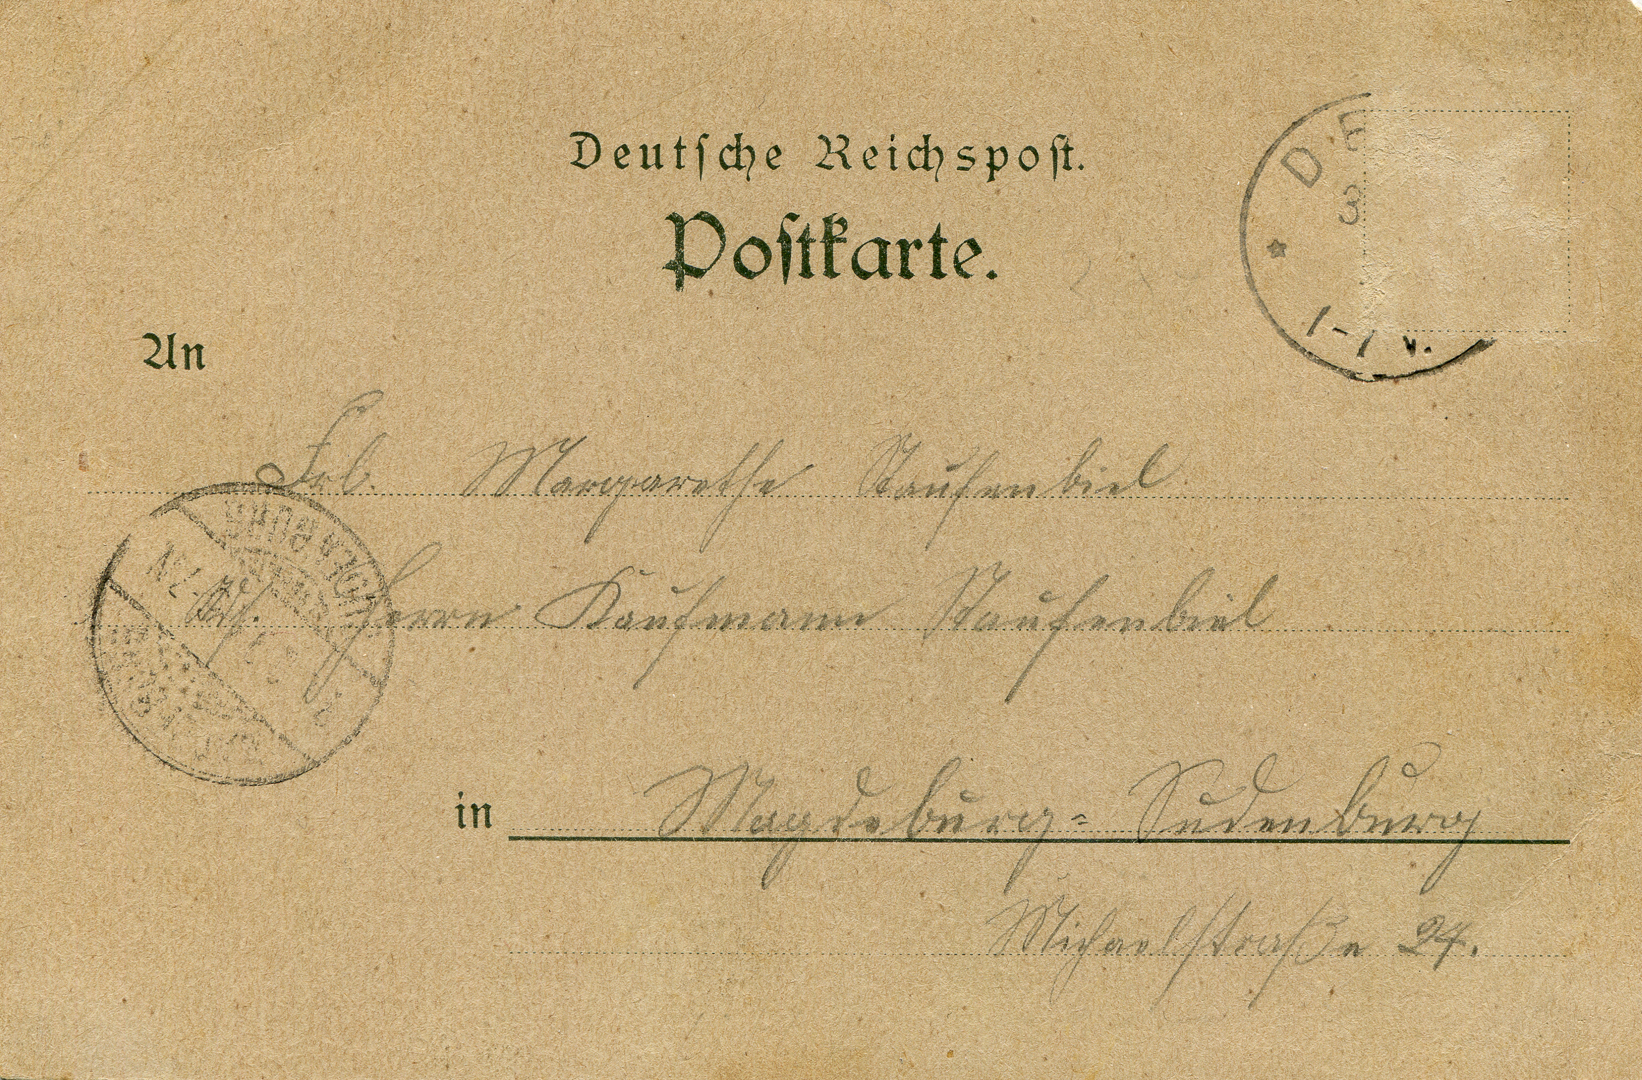 Deutsche Reichspost.
Postkarte.
DE
3
1-1 V.
An
Frl. Margarethe Staufenbiel
Adr. Herrn Kaufmann Staufenbiel
in Magdeburg-Sudenburg
Michaelstraße 27.